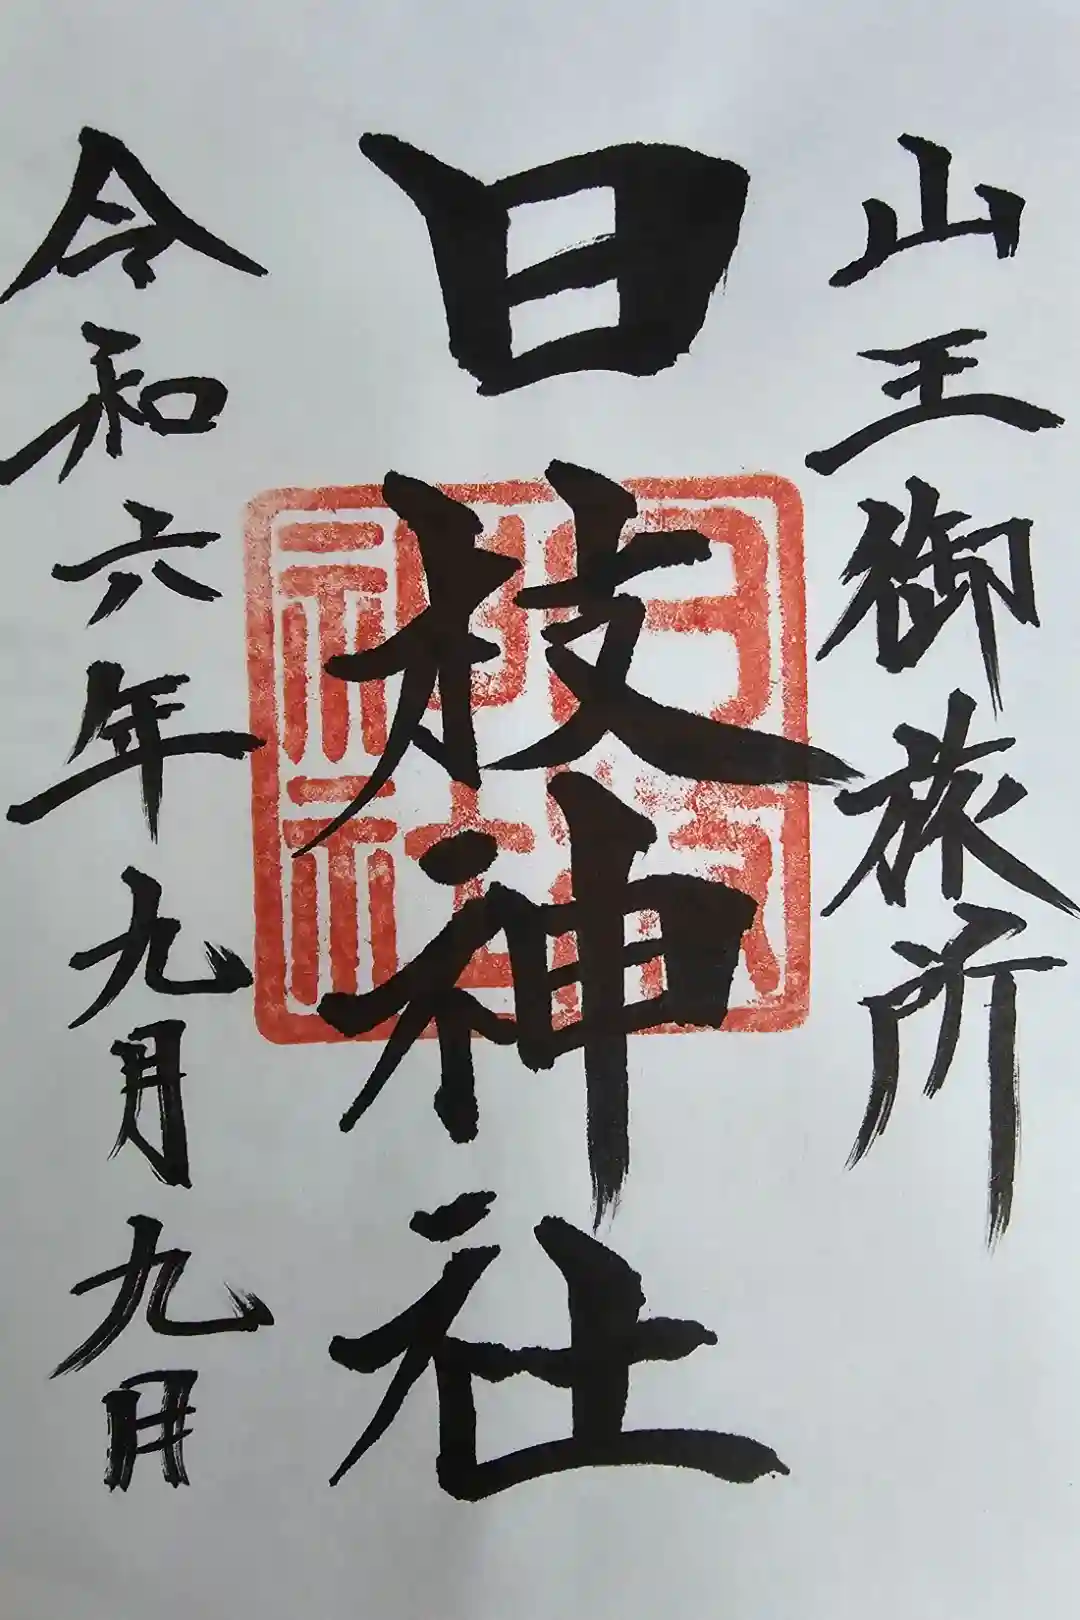 山王御旅所
日枝神社
令和六年九月九日